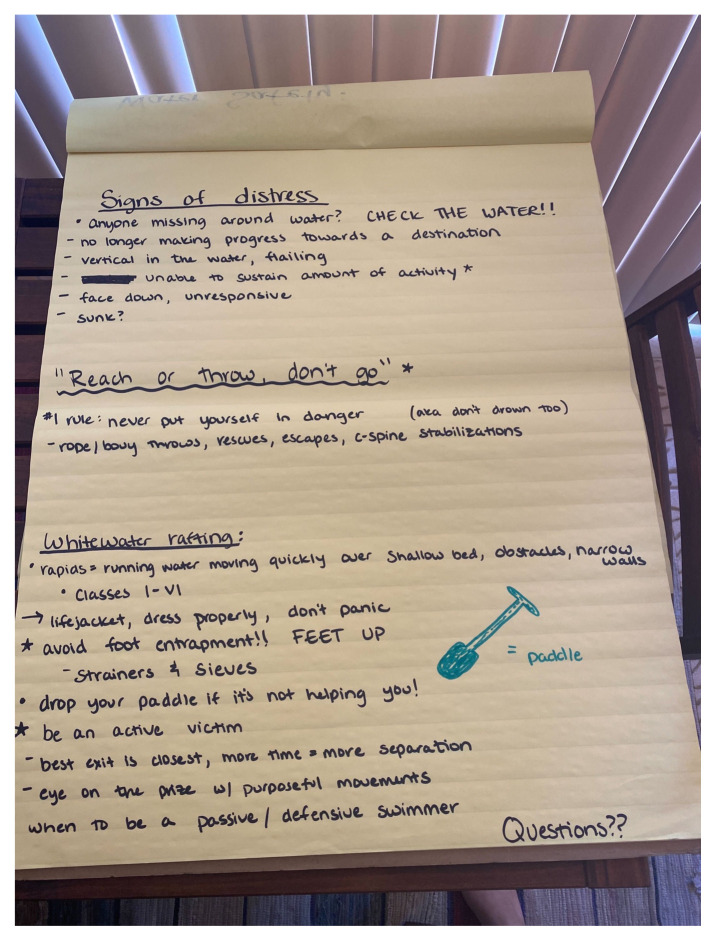 Water Safety.
Signs of distress
• anyone missing around water? CHECK THE WATER!!
- no longer making progress towards a destination
- vertical in the water, flailing
- unable to sustain amount of activity *
- face down, unresponsive
- sunk?
"Reach or throw, don't go" *
#1 rule: never put yourself in danger (aka don't drown too)
- rope/bouy throws, rescues, escapes, c-spine stabilizations
Whitewater rafting:
• rapids = running water moving quickly over shallow bed, obstacles, narrow
walls
• Classes I-VI
→ lifejacket, dress properly, don't panic
★ avoid foot entrapment!! FEET UP
- Strainers & Sieves
= paddle
• drop your paddle if it's not helping you!
★ be an active victim
- best exit is closest, more time = more separation
- eye on the prize w/ purposeful movements
when to be a passive/defensive swimmer
Questions??